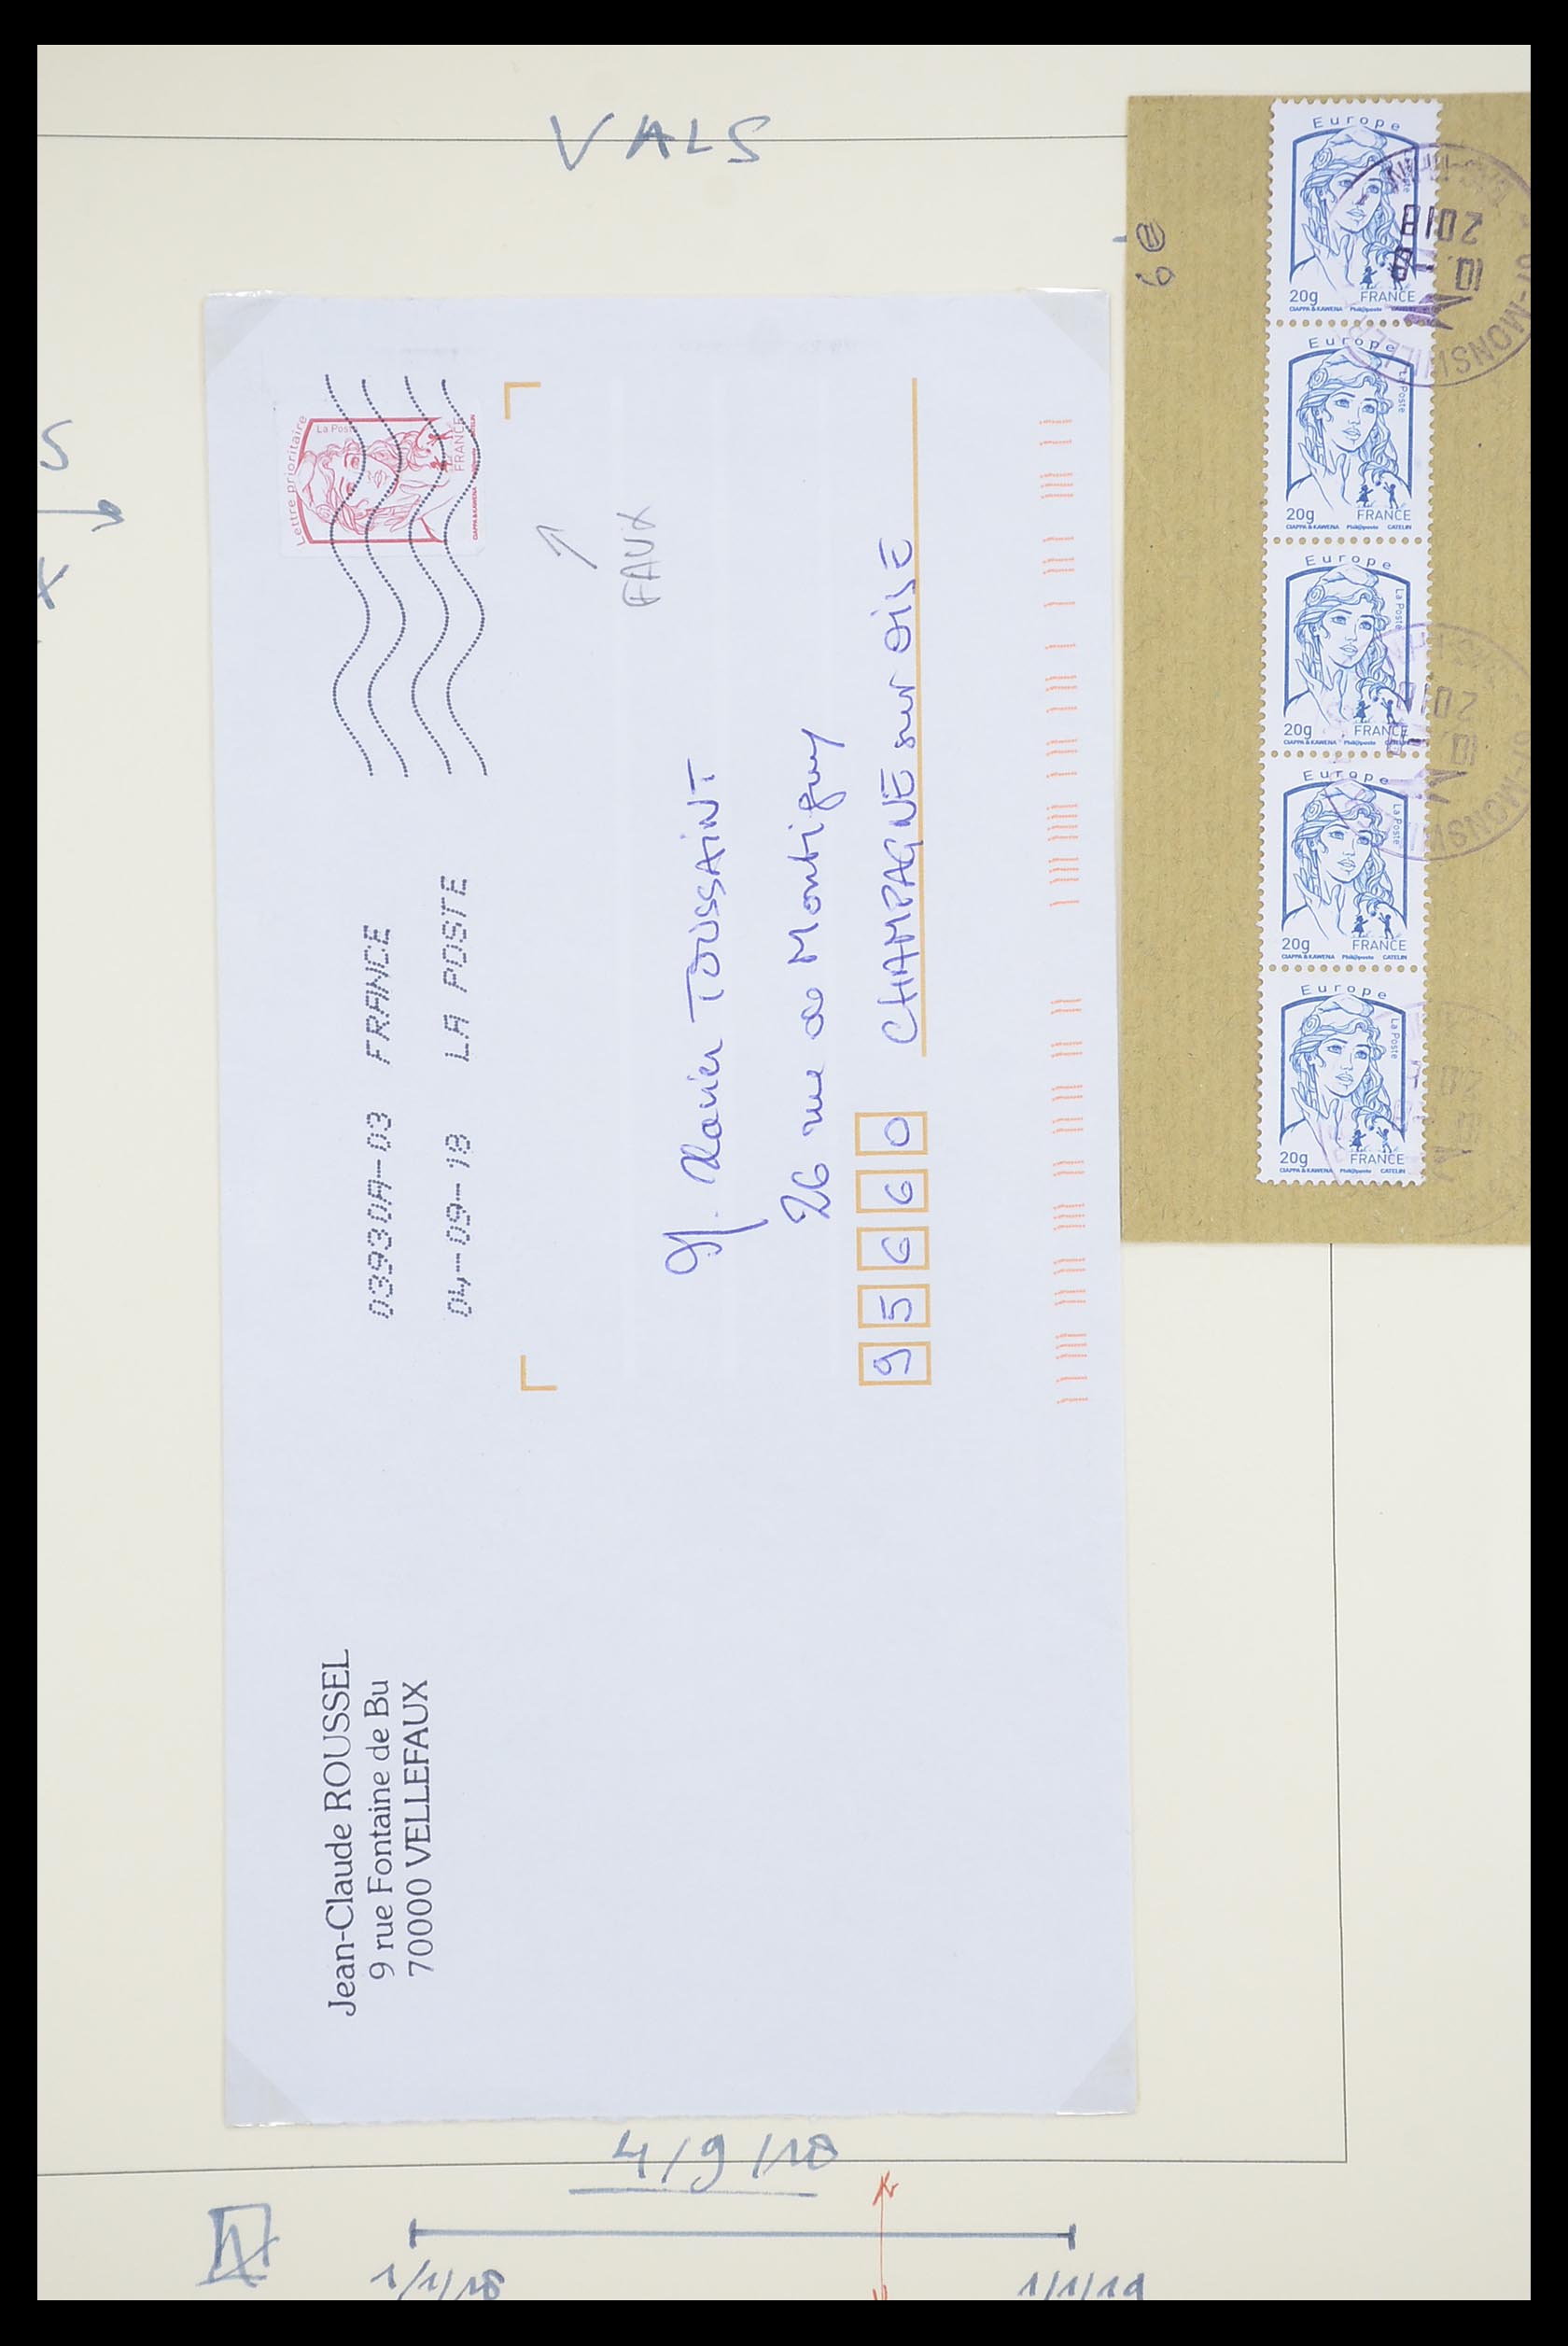 VALS
S
X
6€
Lettre prioritaire
La Poste
FRANCE
CIAPPA & KAWENA
CATELIN
FAUX
03930A-03 FRANCE
04-09-18 LA POSTE
M. Xavier TOUSSAINT
26 rue de Montigny
95660 CHAMPAGNE sur OISE
Jean-Claude ROUSSEL
9 rue Fontaine de Bu
70000 VELLEFAUX
Europe
20g FRANCE
CIAPPA & KAWENA Phil@poste
Europe
La Poste
20g FRANCE
CIAPPA & KAWENA Phil@poste CATELIN
Europe
La Poste
20g FRANCE
CIAPPA & KAWENA Phil@poste
Europe
La Poste
20g FRANCE
CIAPPA & KAWENA Phil@poste CATELIN
Europe
La Poste
20g FRANCE
CIAPPA & KAWENA Phil@poste CATELIN
67-MONSWILLER
10 -9
2018
2018
4/9/18
1/1/18
1/1/19